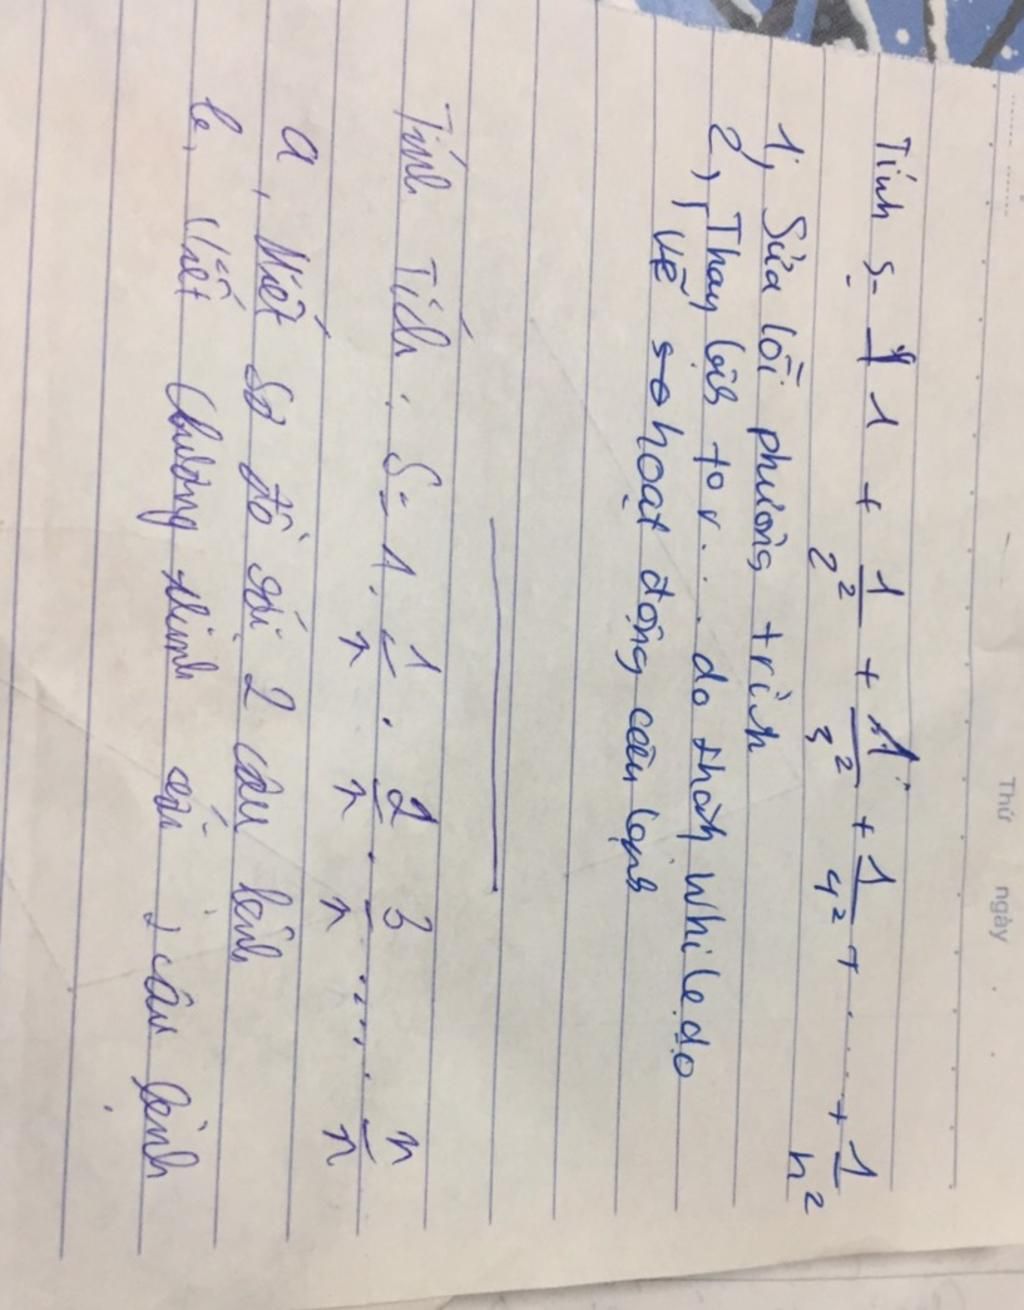 Thứ ngày
Tính S = 1 + 1/2² + 1/3² + 1/4² + ..... + 1/n²
1, Sửa lỗi phương trình
2, Thay lặp for... do thành while do
, vẽ sơ hoạt động câu lệnh
Tính Tích : S = 1 . 1/n . 2/n . 3/n ..... n/n
a, Viết sơ đồ với 2 câu lệnh
b, viết chương trình với 2 câu lệnh